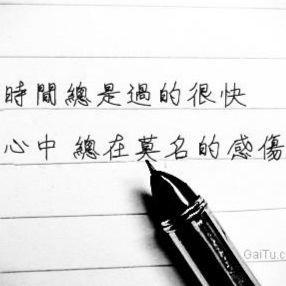 時間總是過的很快
心中 總在莫名的感傷
GaiTu.c